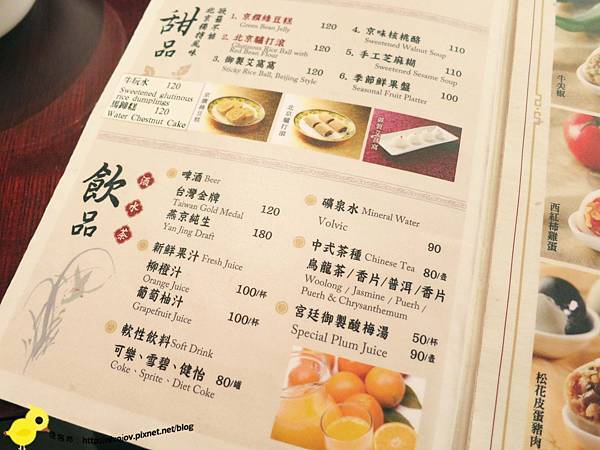 甜品
豌荳不甜
北京獨特風味
1. 京糕綠豆糕 120
Green Bean Jelly
2. 北京驢打滾 120
Glutinous Rice Ball with
Red Bean Flour
3. 御製艾窩窩 120
Sticky Rice Ball, Beijing Style
4. 京味核桃酪 110
Sweetened Walnut Soup
5. 手工芝麻糊 110
Sweetened Sesame Soup
6. 季節鮮果盤 100
Seasonal Fruit Platter
牛玩水 120
Sweetened glutinous
rice dumplings
馬蹄糕 120
Water Chestnut Cake
北京驢打滾
御製艾窩窩
飲品
酒水茶
啤酒 Beer
台灣金牌 120
Taiwan Gold Medal
燕京純生 180
Yan Jing Draft
新鮮果汁 Fresh Juice
柳橙汁 100/杯
Orange Juice
葡萄柚汁 100/杯
Grapefruit Juice
軟性飲料 Soft Drink
可樂、雪碧、健怡 80/罐
Coke、Sprite、Diet Coke
礦泉水 Mineral Water
Volvic 90
中式茶種 Chinese Tea 80/壺
烏龍茶/香片/普洱/香片
Woolong / Jasmine / Puerh /
Puerh & Chrysanthemum
宮廷御製酸梅湯 50/杯
Special Plum Juice 90/壺
牛尖椒
西紅柿雞蛋
松花皮蛋豬肉
pixnet.net/blog